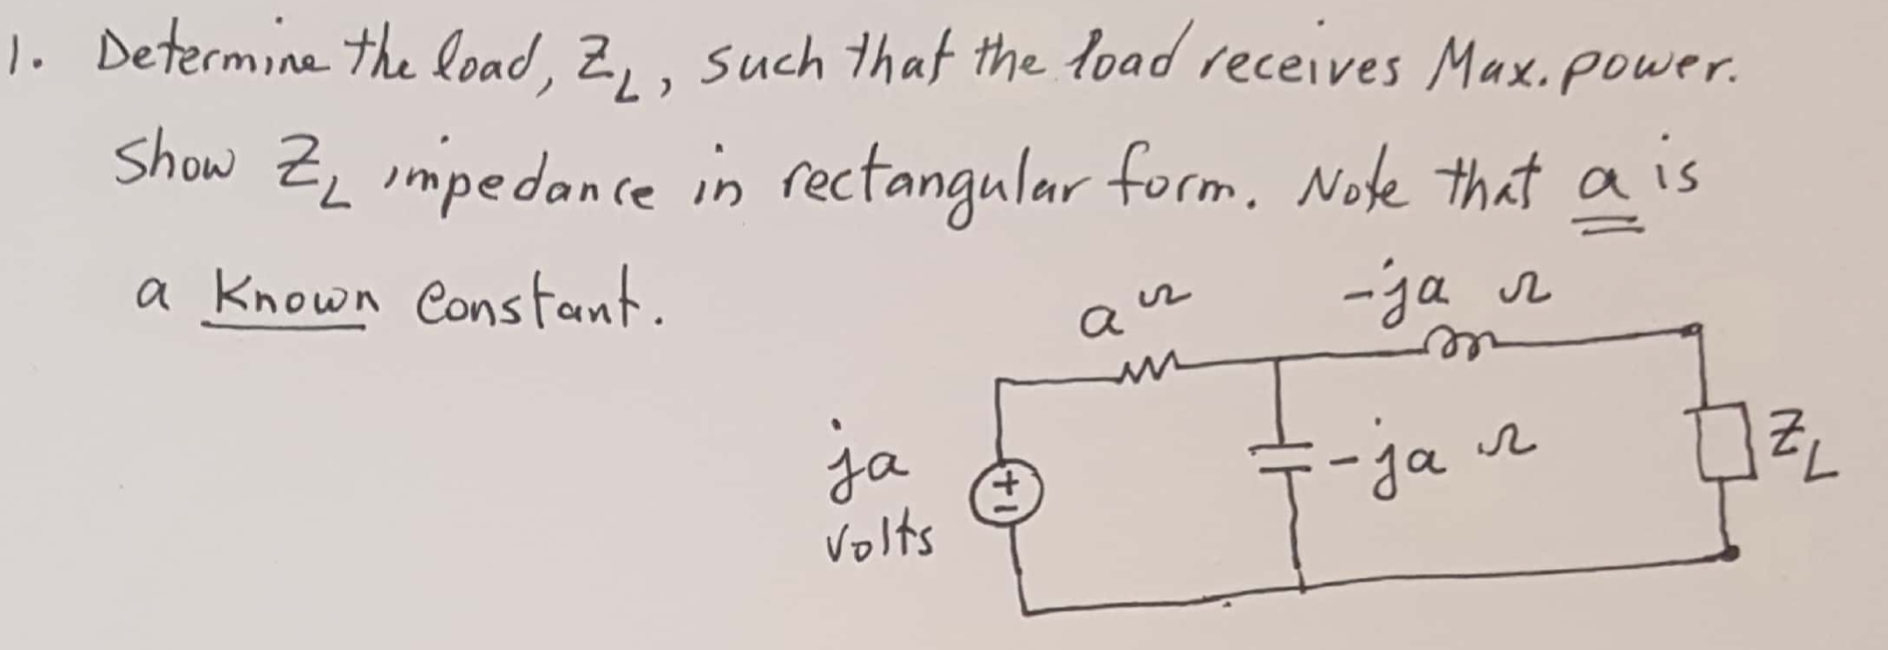 1. Determine the load, Z_L, such that the load receives Max. power.
Show Z_L impedance in rectangular form. Note that a is
a Known Constant.
a Ω
-ja Ω
ja
volts
+
-
-ja Ω
Z_L